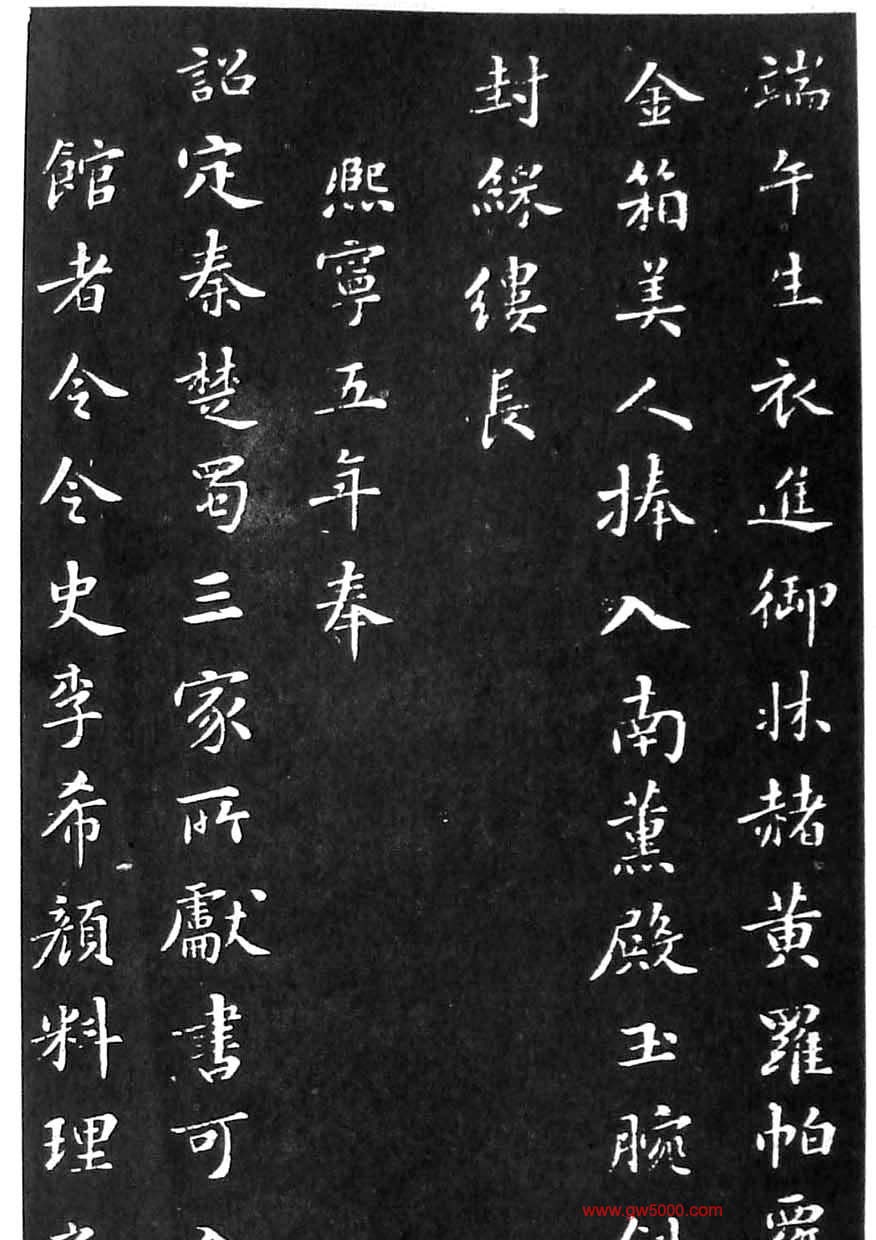 端午生衣進御牀赭黃羅帕
金箱美人捧入南薰殿玉腕
封綵縷長
熙寧五年奉
詔定秦楚蜀三家所獻書可
館者令令史李希顏料理
www.gw5000.com